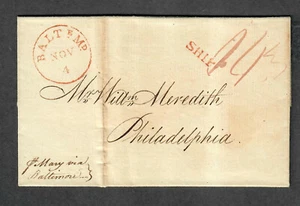 BALTE MD
NOV
4
SHIP
Mr Willm Meredith
Philadelphia.
pr Mary via
Baltimore